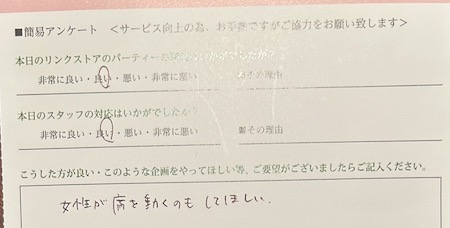 ■簡易アンケート <サービス向上の為、お手数ですがご協力をお願い致します>
本日のリンクストアのパーティーいかがでしたか?
非常に良い・良い・悪い・非常に悪い ■その理由
本日のスタッフの対応はいかがでしたか?
非常に良い・良い・悪い・非常に悪い ■その理由
こうした方が良い・このような企画をやってほしい等、ご要望がございましたらご記入ください。
女性が席を動くのもしてほしい.